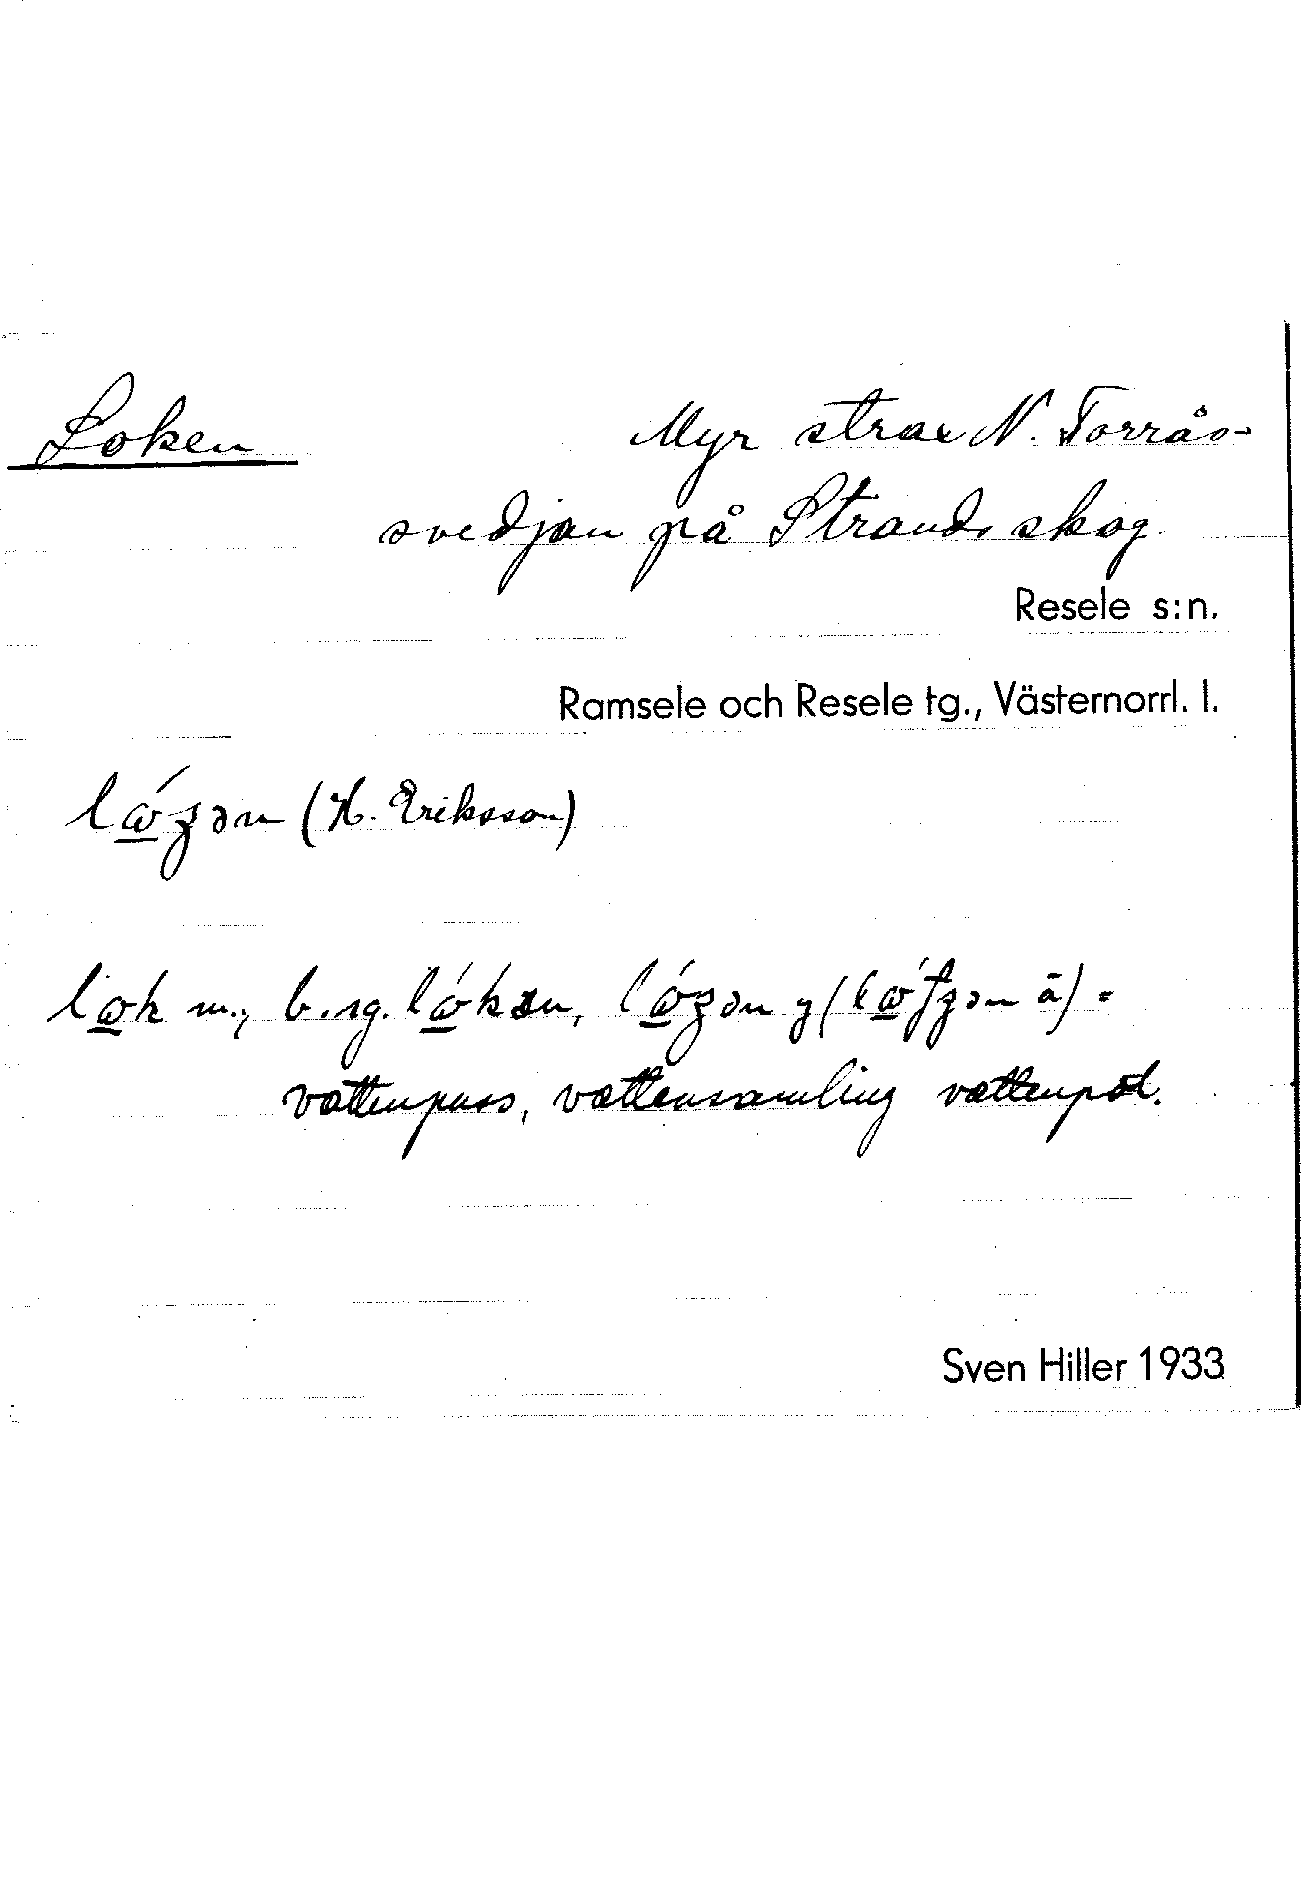 Loken Myr strax N. Torrås-
svedjan på Strands skog
Resele s:n.
Ramsele och Resele tg., Västernorrl. l.
(H. Eriksson)
m., b. sg.
vattenpuss, vattensamling vattenpöl.
Sven Hiller 1933